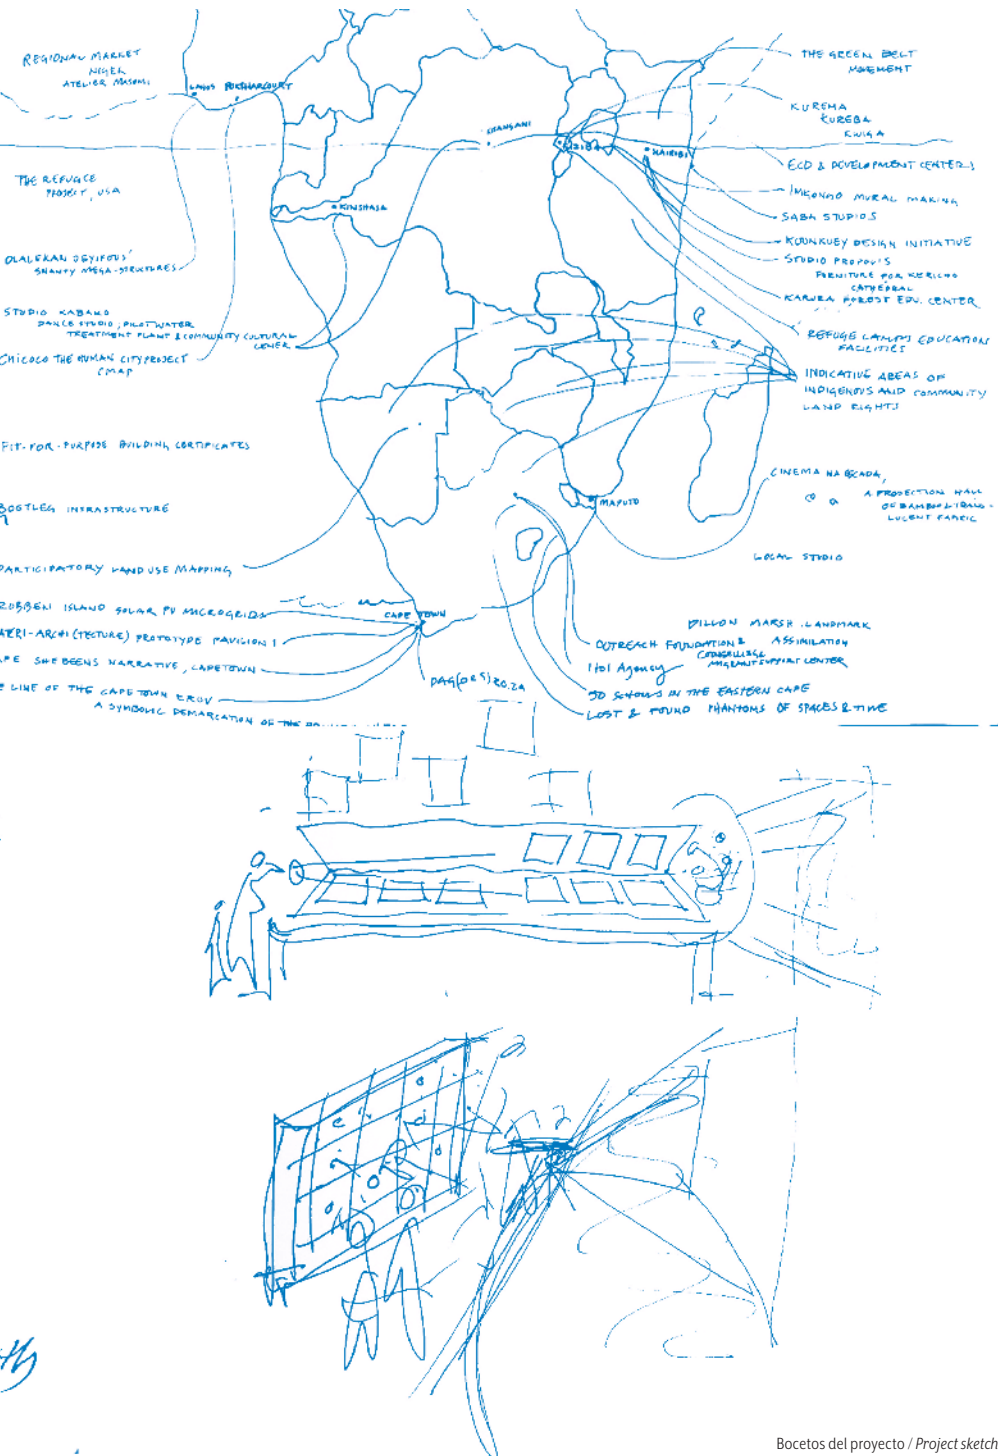 REGIONAL MARKET
NIGER
ATELIER MASOMI
LAGOS PORTHARCOURT
THE REFUGEE
PROJECT, USA
OLALEKAN JEYIFOUS'
SHANTY MEGA-STRUCTURES
STUDIO KABAKO
DANCE STUDIO, PILOT WATER
TREATMENT PLANT & COMMUNITY CULTURAL
CENER
CHICOCO THE HUMAN CITY PROJECT
CMAP
FIT-FOR-PURPOSE BUILDING CERTIFICATES
BOOTLEG INFRASTRUCTURE
PARTICIPATORY LAND USE MAPPING
ROBBEN ISLAND SOLAR PV MICROGRID
AERI-ARCHI(TECTURE) PROTOTYPE PAVILION 1
APE SHEBEENS NARRATIVE, CAPETOWN
E LINE OF THE CAPE TOWN ERUV
A SYMBOLIC DEMARCATION OF THE
KINSHASA
NAIROBI
MAPUTO
CAPE TOWN
DAG(OR S) 20.24
THE GREEN BELT
MOVEMENT
KUREMA
KUREBA
KWIGA
ECO & DEVELOPMENT CENTERS
IMKONGO MURAL MAKING
SABA STUDIOS
KOUNKUEY DESIGN INITIATIVE
STUDIO PROPOLIS
FURNITURE FOR KERICHO
CATHEDRAL
KARURA FOREST EDU. CENTER
REFUGE CAMPS EDUCATION
FACILITIES
INDICATIVE AREAS OF
INDIGENOUS AND COMMUNITY
LAND RIGHTS
CINEMA NA BCADA,
A PROJECTION HALL
OF BAMBOO & TRANS-
LUCENT FABRIC
LOCAL STUDIO
DILLON MARSH. LANDMARK
OUTREACH FOUNDATION & ASSIMILATION
1to1 Agency
MIGRANT SUPPORT CENTER
3D SCHOOLS IN THE EASTERN CAPE
LOST & FOUND PHANTOMS OF SPACES & TIME
Bocetos del proyecto / Project sketch